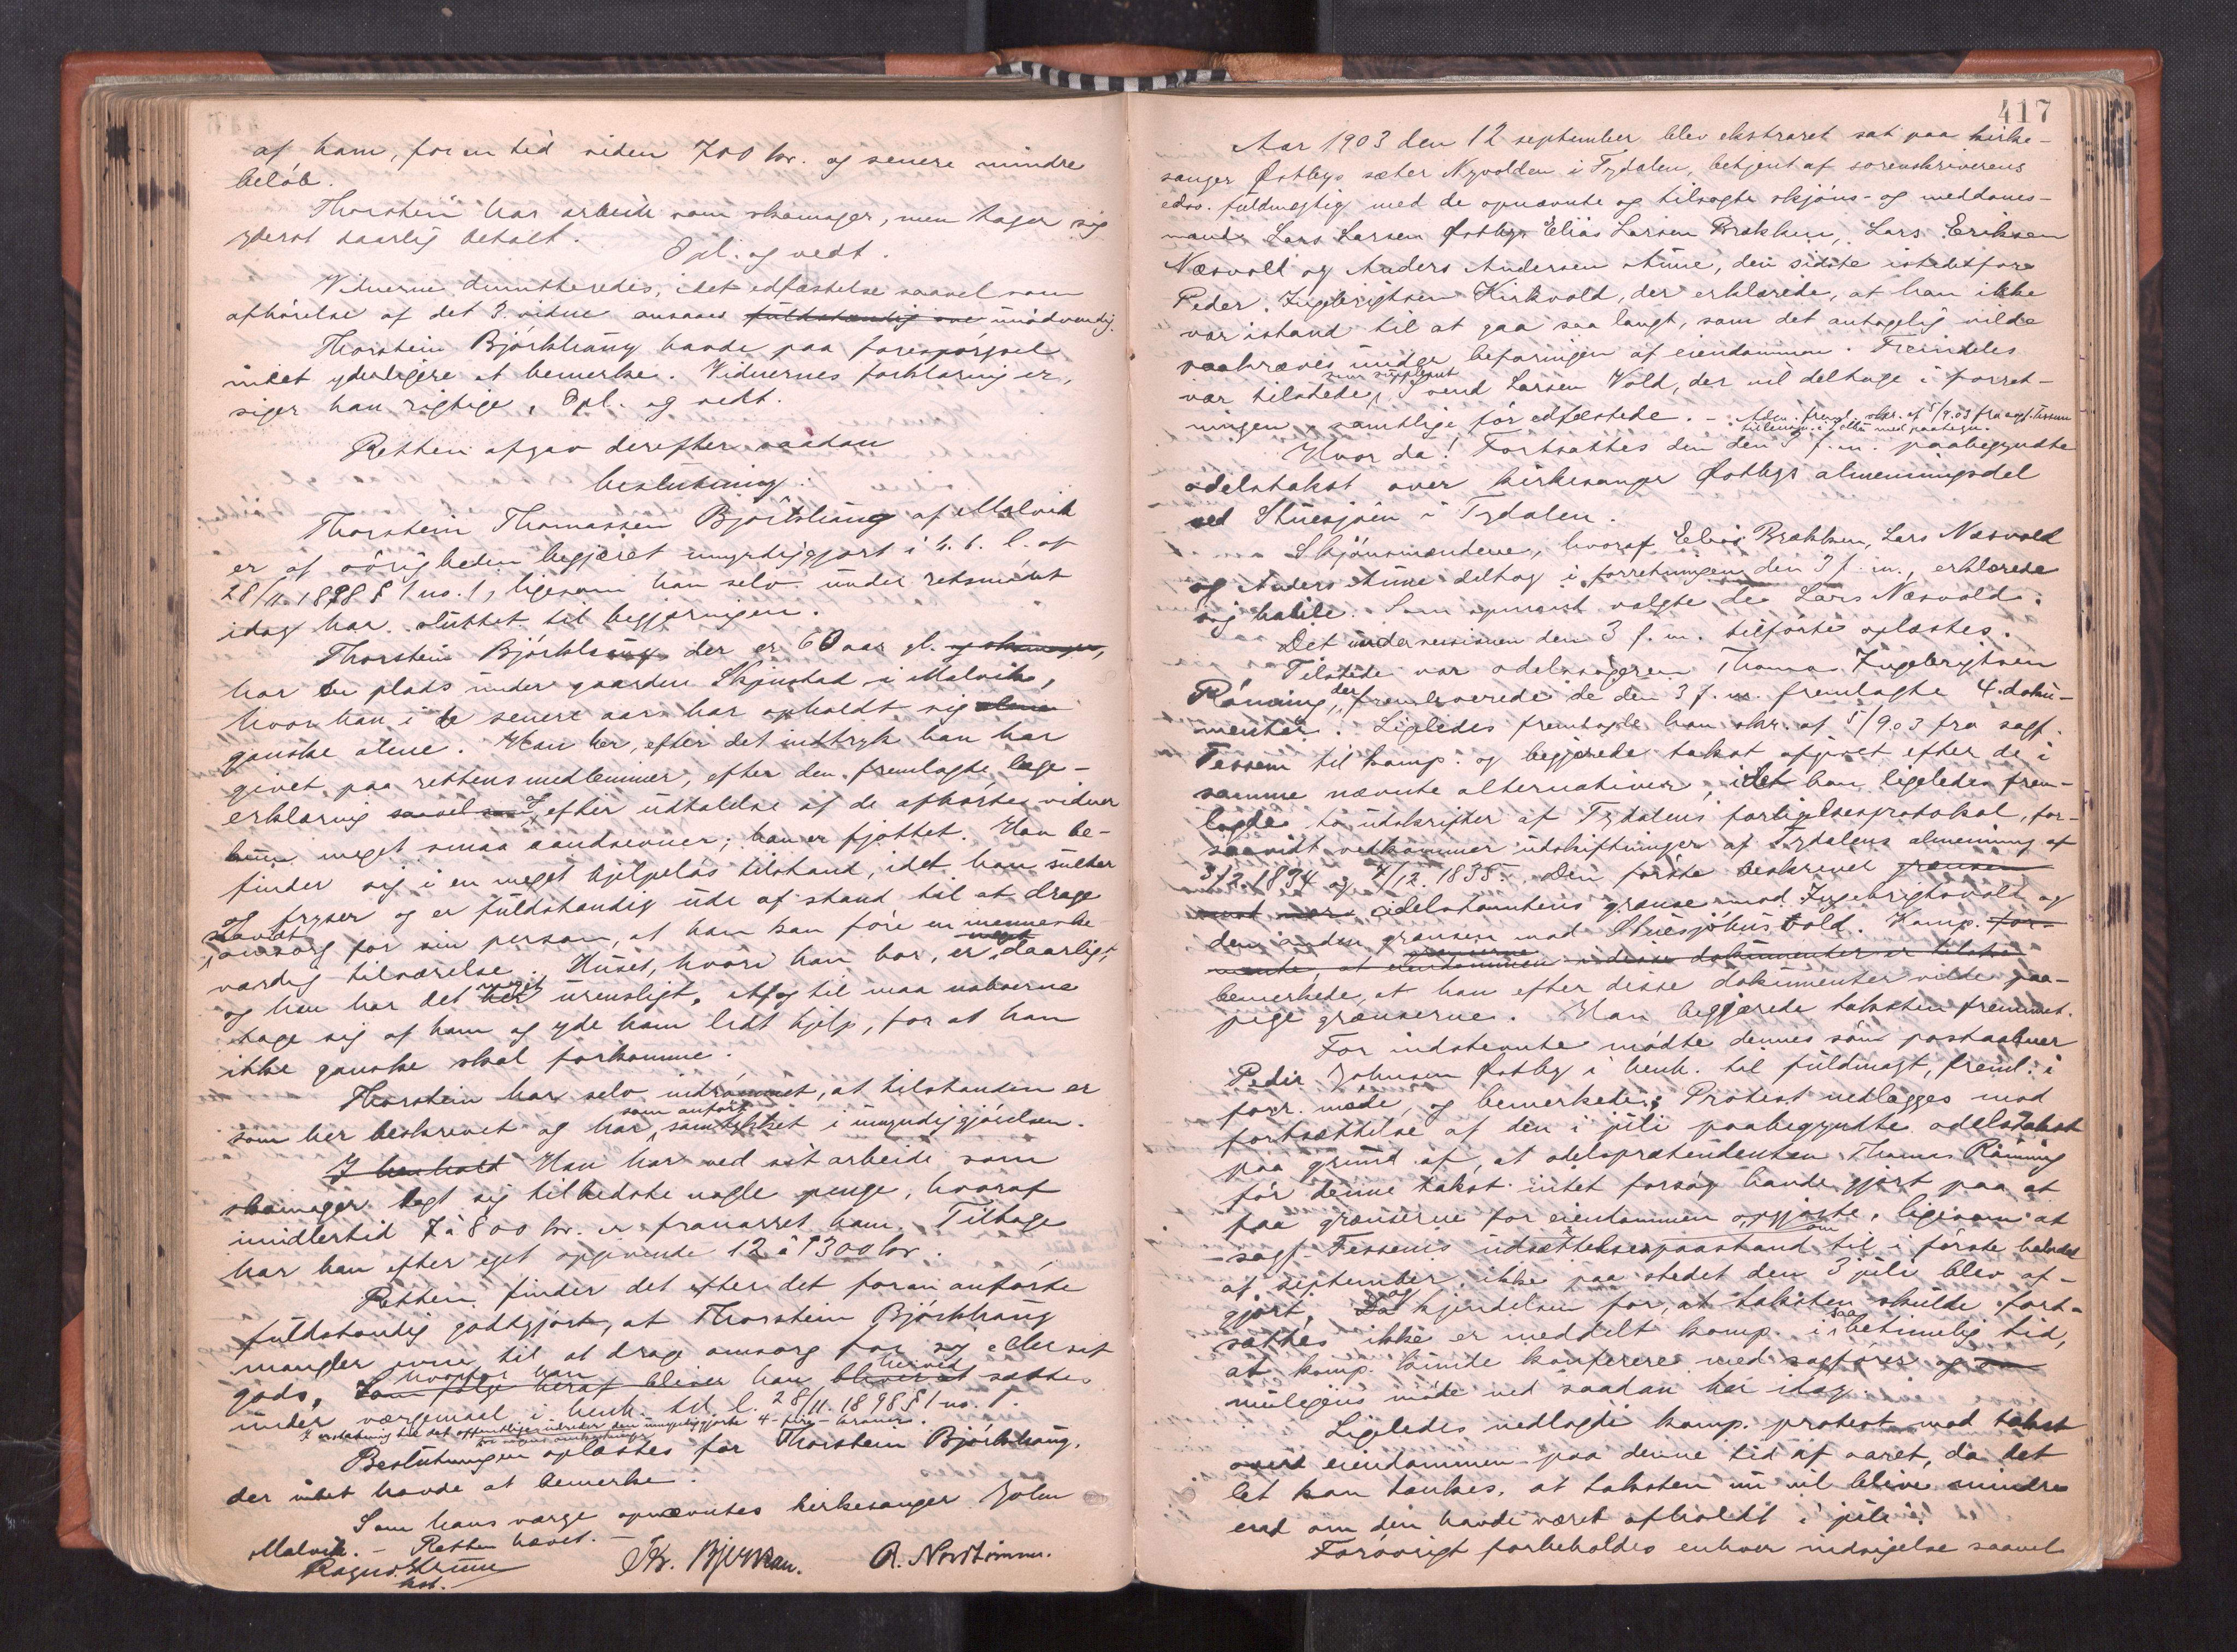 af ham, for en tid siden 700 kr. og senere mindre
beløb.
Thorstein har arbeide som skomager, men tager sig
yderst daarlig betalt.
Opl. og vedt.
Vidnerne dimitteredes, idet edfæstelse saavel som
afhørelse af det 3. vidne ansaaes fuldstændig unødvendig.
Thorstein Bjørkhaug havde paa forespørgsel
intet yderligere at bemerke. Vidnernes forklaring er,
siger han rigtige. Opl. og vedt.
Retten afgav derefter saadan
beslutning:
Thorstein Thomassen Bjørkhaug af Malvik
er af øvrigheden begjæret umyndiggjort i h. t. l. af
28/11 1898 § 1 no. 1, ligesom han selv under retsmøtet
idag har sluttet til begjæringen.
Thorstein Bjørkhaug der er 60 aar gl. og skomager,
har en plads under gaarden Skjenstad i Malvik,
hvor han i de senere aar har opholdt sig alene
ganske alene. Han har, efter det indtryk han har
givet paa rettens medlemmer, efter den fremlagte læge-
erklæring saavel som efter udtalelse af de afhørte vidner
kun meget smaa aandsevner; han er fjottet. Han be-
finder sig i en meget hjelpeløs tilstand, idet han sulter
og fryser og er fuldstændig ude af stand til at drage
saadan omsorg for sin person, at han kan føre en menneske-
værdig tilværelse. Huset, hvori han bor, er meget daarligt,
og han har det meget urensligt. Af og til maa naboerne
tage sig af ham og yde ham lidt hjelp, for at han
ikke ganske skal forkomme.
Thorstein har selv indrømmet, at tilstanden er
som her beskrevet og har, som anført, samtykket i umyndiggjørelsen.
I henhold Han har ved sit arbeide som
skomager lagt sig tilbedste nogle penge, hvoraf
imidlertid 7 à 800 kr. er franarret ham. Tilbage
har han efter eget opgivende 12 à 1300 kr.
Retten finder det efter det foran anførte
fuldstændig godtgjort, at Thorstein Bjørkhaug
mangler evne til at drage omsorg for sig eller sit
gods, hvorfor han Som følge heraf bliver han herved bliver at sættes
under værgemaal i henh. til l. 28/11. 1898 § 1 no. 1.
I erstatning til det offentlige udreder den umyndiggjorte 4 - fire - kroner.
Beslutningen oplæstes for Thorstein Bjørkhaug,
der intet havde at bemerke.
Som hans værge opnævntes kirkesanger John
Malvik. - Retten hævet. -
Ragnv. Strüm
kst.
Kr. Bjerkan. A. Nordtømme.
417
Aar 1903 den 12 september blev ekstraret sat paa kirke-
sanger Østbys sæter Nyvolden i Tydalen, betjent af sorenskriverens
edsv. fuldmægtig med de opnævnte og tilsagte skjøns- og meddoms-
mænd Lars Larsen Østby, Elias Larsen Brækken, Lars Eriksen
Næsvold og Anders Andersen Aune, den sidste istedetfor
Peder Ingebrigtsen Kirkvold, der erklærede, at han ikke
var istand til at gaa saa langt, som det antagelig vilde
paakræves under befaringen af eiendommen. Fremdeles
var tilstede, som suppleant Svend Larsen Vold, der vil deltage i forret-
ningen, samtlige før edfæstede. - Adm. freml. skr. af 5/9.03 fra sagf. Tessem
med paategn.
Hvor da: Fortsattes den den 3 f. m. paabegyndte
odelstakst over kirkesanger Østbys almenningsdel
ved Stuesjøen i Tydalen.
Skjønsmændene, hvoraf Elias Brækken, Lars Næsvold
og Anders Aune deltog i forretningen den 3 f. m., erklærede
sig habile. Som opmand valgte de Lars Næsvold.
Det under sessionen den 3 f. m. tilførte oplæstes.
Tilstede var odelssøgeren Thomas Ingebrigtsen
Rønning, der fremleverede de den 3 f. m. fremlagte 4 doku-
menter. Ligeledes fremlagde han skr. af 5/9 03 fra sagf.
Tessem til komp. og begjærede takst afgivet efter de i
samme nævnte alternativer, idet han ligeledes frem-
lagde to udskrifter af Tydalens forligelsesprotokol, for-
saavidt vedkommer udskiftninger af Tydalens almenning af
3/12. 1834 og 7/12. 1835. Den første beskrevet grænsen
mod nær odelstomtens grænse mod Ingebrigtsvold og
den anden grænsen mod Stuesjøhusvold. Komp. for-
mente, at eiendommen grænserne i disse dokumenter er tilstr
bemerkede, at han efter disse dokumenter vilde paa-
pege grænserne. Han begjærede taksten fremmet.
For indstevnte mødte dennes søn postaabner
Peder Johnsen Østby i henh. til fuldmagt, freml. i
forr. møde, og bemerkede: Protest nedlægges mod
fortsættelse af den i juli paabegyndte odelstakst
paa grund af, at odelsprætendenten Thomas Rønning
før denne takst intet forsøg havde gjort paa at
faa grænserne for eiendommen opgjorte, ligesom at
sagf. Tessems udsættelsespaastand om til i første halvdel
af september ikke paa stedet den 3 juli blev af-
gjort, Da og kjendelsen for, at taksten skulde fort-
sættes ikke er meddelt komp. i saa betimelig tid,
at komp. kunde konferere med sagfører og
muligens møde med saadan her idag.
Ligeledes nedlagde komp. protest mod takst
over eiendommen paa denne tid af aaret, da det
let kan tænkes, at taksten nu vil blive mindre
end om den havde været afholdt i juli.
Forøvrigt forbeholdes enhver indsigelse saavel